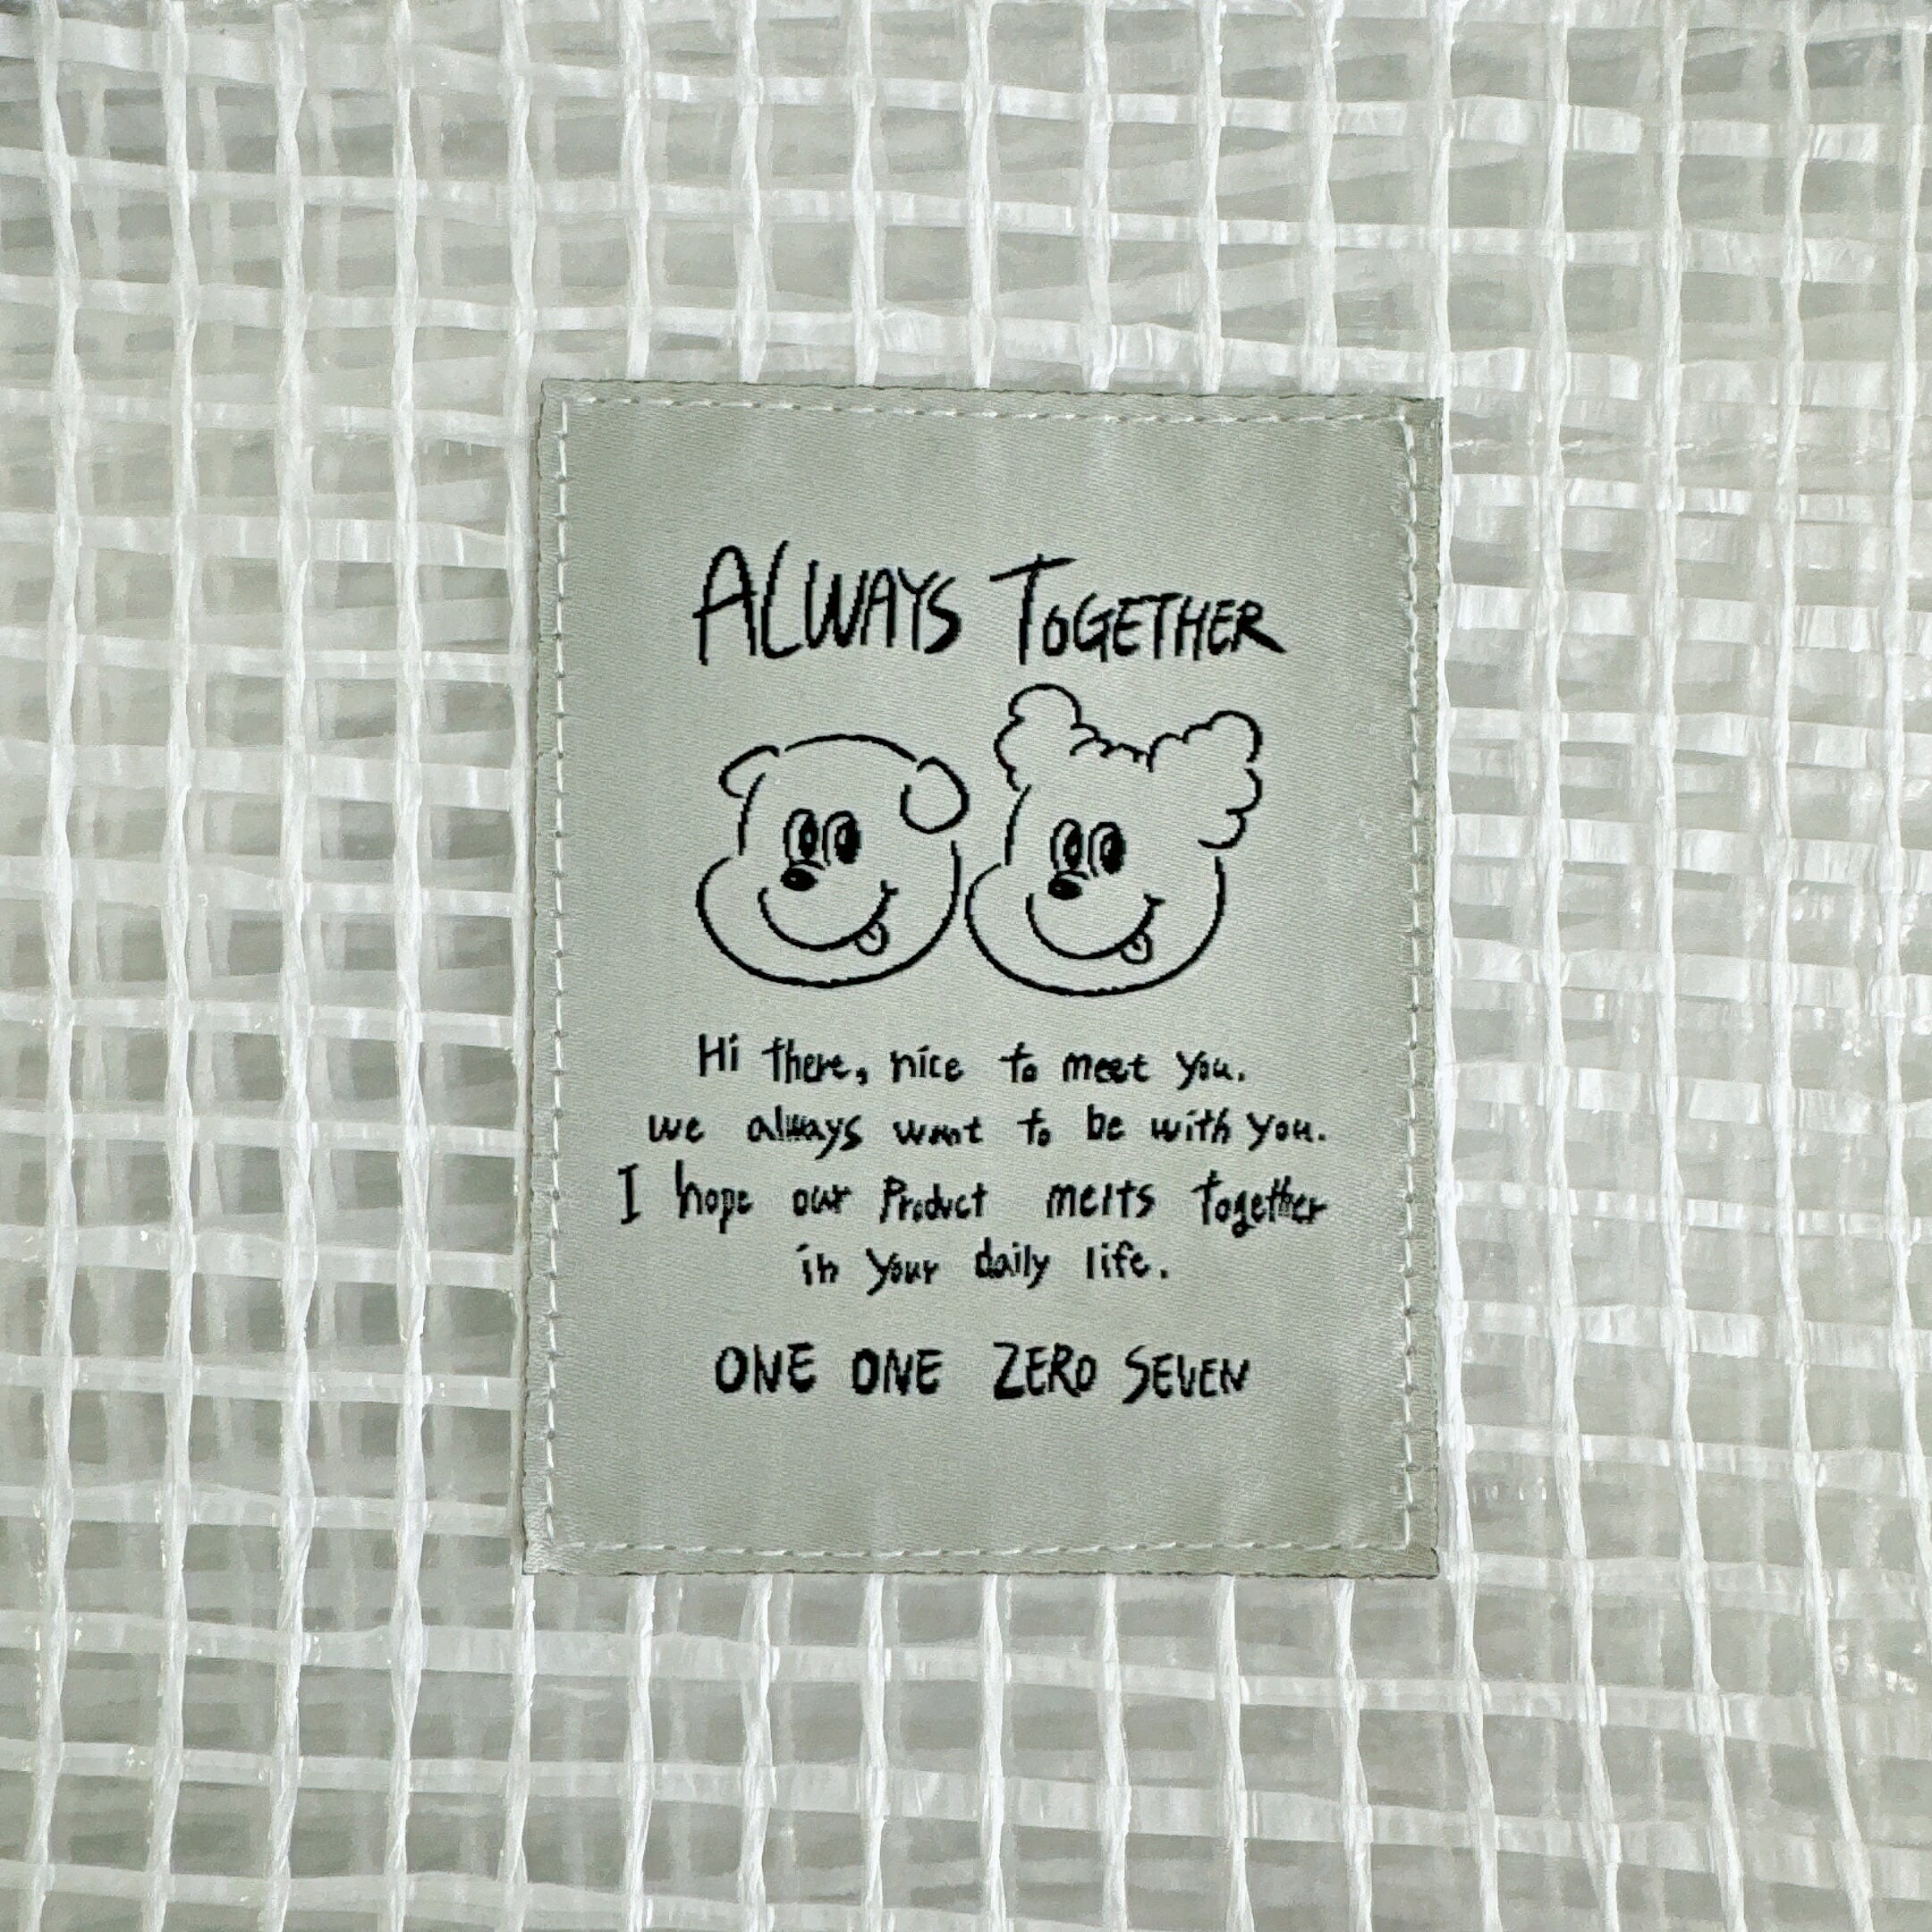 ALWAYS TOGETHER
Hi there, nice to meet you.
we always want to be with you.
I hope our Product melts together
in your daily life.
ONE ONE ZERO SEVEN